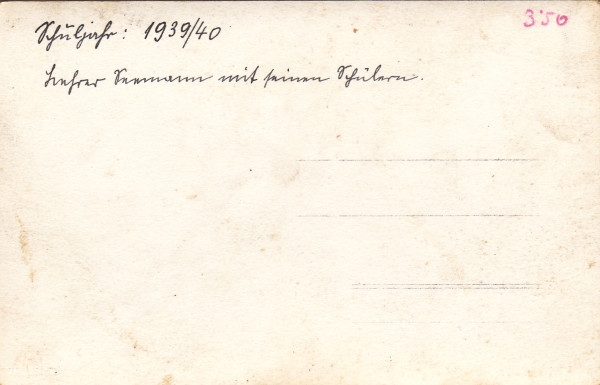 Schuljahr: 1939/40
3.50
Lehrer Seemann mit seinen Schülern.